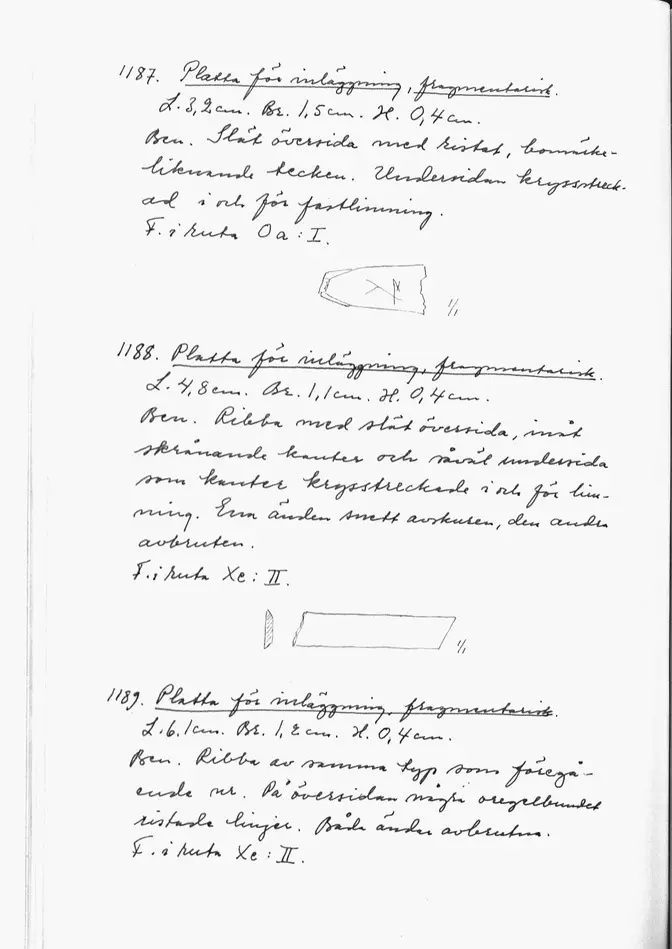 1187. Platta för inläggning, fragmentarisk.
L. 3,2 cm. Br. 1,5 cm. H. 0,4 cm.
Ben. Slät översida med ristat, bomärke-
liknande tecken. Undersidan krysstreck-
ad i och för fastlimning.
F. i ruta Oa : I.
1/1
1188. Platta för inläggning, fragmentarisk.
L. 4,8 cm. Br. 1,1 cm. H. 0,4 cm.
Ben. Ribba med slät översida, inåt
skrånande kanter och såväl undersida
som kanter krysstreckade i och för lim-
ning. Ena änden snett avskuren, den andra
avbruten.
F. i ruta Xc : II.
1/1
1189. Platta för inläggning, fragmentarisk.
L. 6,1 cm. Br. 1,2 cm. H. 0,4 cm.
Ben. Ribba av samma typ som föregå-
ende nr. På översidan några oregelbundet
ristade linjer. Båda ändar avbrutna.
F. i ruta Xc : II.